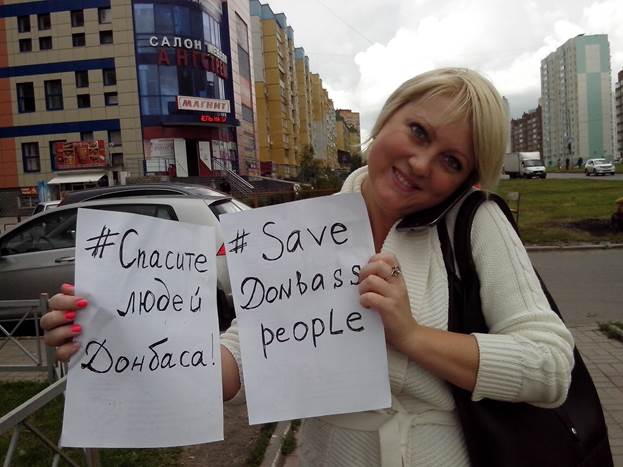 САЛОН
АНГЕЛ
МАГНИТ
#Спасите
людей
Донбаса!
# Save
Donbass
people